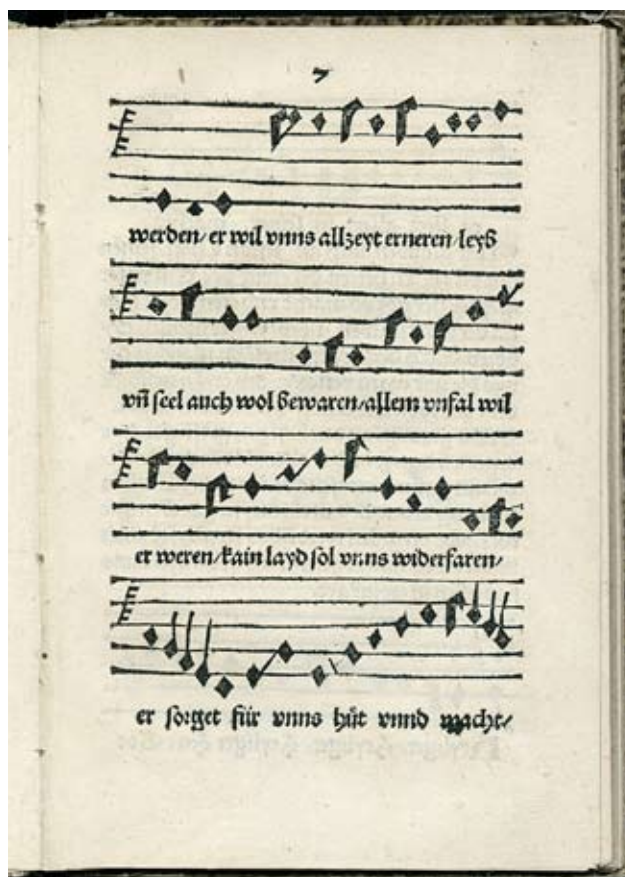 7
werden/ er wil vnns allzeyt erneren/ leyb
vñ seel auch wol bewaren/ allem vnfal wil
er weren/ kain layd sol vnns widerfaren/
er sorget für vnns hüt vnnd wacht/